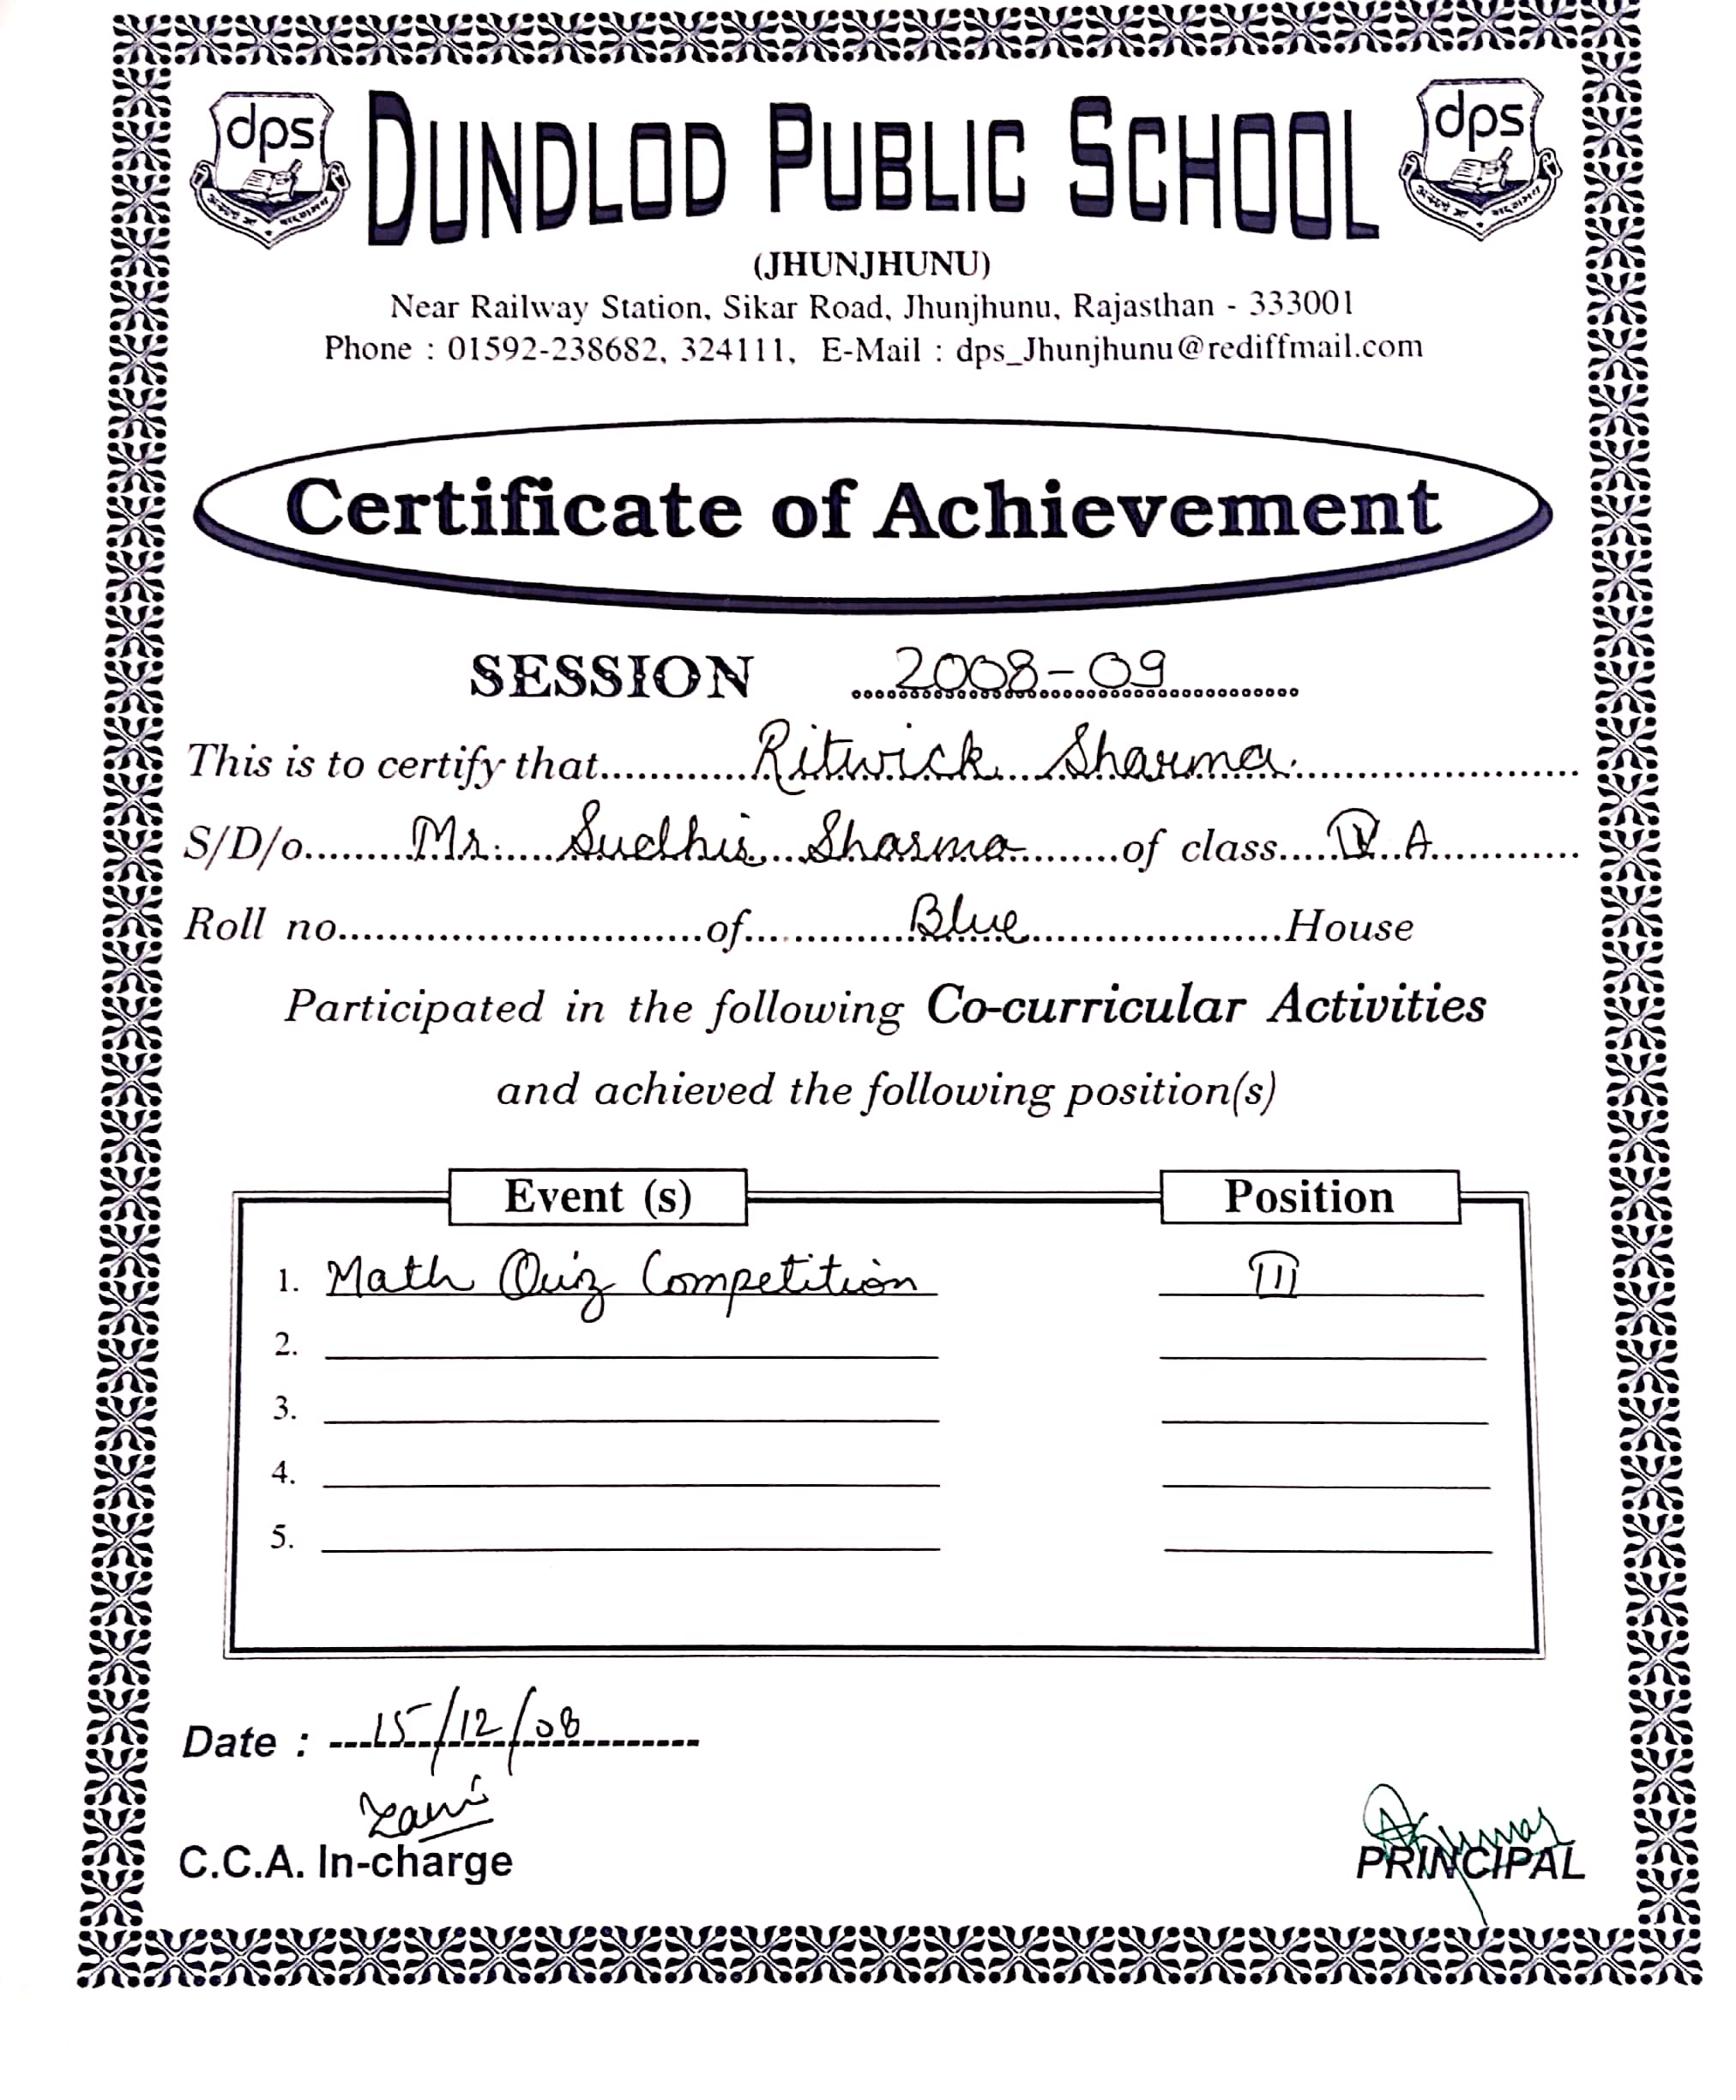 dps DUNDLOD PUBLIC SCHOOL dps
(JHUNJHUNU)
Near Railway Station, Sikar Road, Jhunjhunu, Rajasthan - 333001
Phone : 01592-238682, 324111, E-Mail : dps_Jhunjhunu@rediffmail.com
Certificate of Achievement
SESSION 2008-09
This is to certify that Ritwick Sharma
S/D/o Mr. Sudhir Sharma of class IV A
Roll no. of Blue House
Participated in the following Co-curricular Activities
and achieved the following position(s)
Event (s) Position
1. Math Quiz Competition III
2.
3.
4.
5.
Date : 15/12/08
C.C.A. In-charge PRINCIPAL